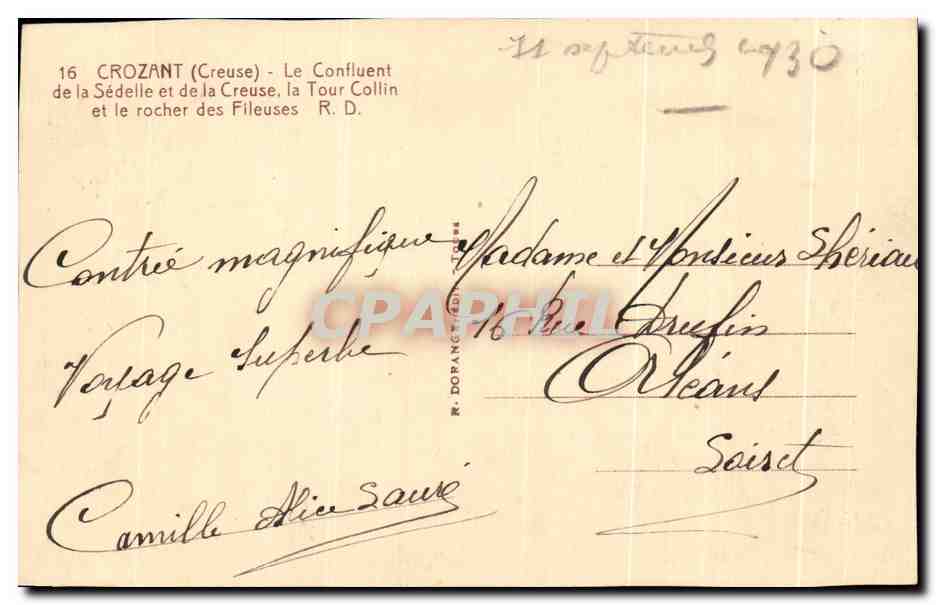 16 CROZANT (Creuse) - Le Confluent
de la Sédelle et de la Creuse, la Tour Collin
et le rocher des Fileuses R. D.
septembre 1930
Contrée magnifique
Voyage Superbe
Camille Alice
R. DORANGE, ÉDIT. TOURS
Madame et Monsieur
16 Rue
Orléans
Loiret
CPAPHIL